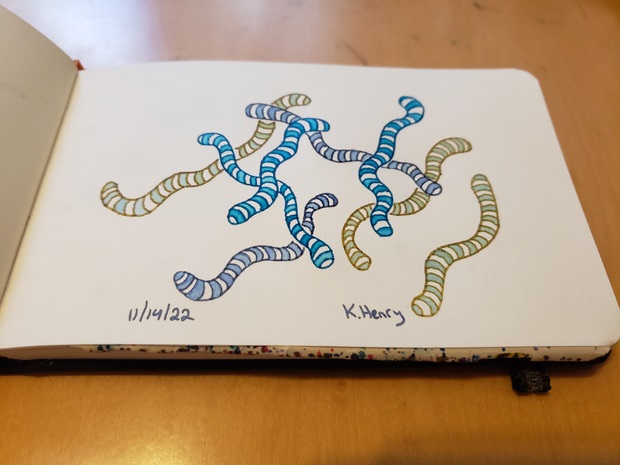 11/14/22
K.Henry